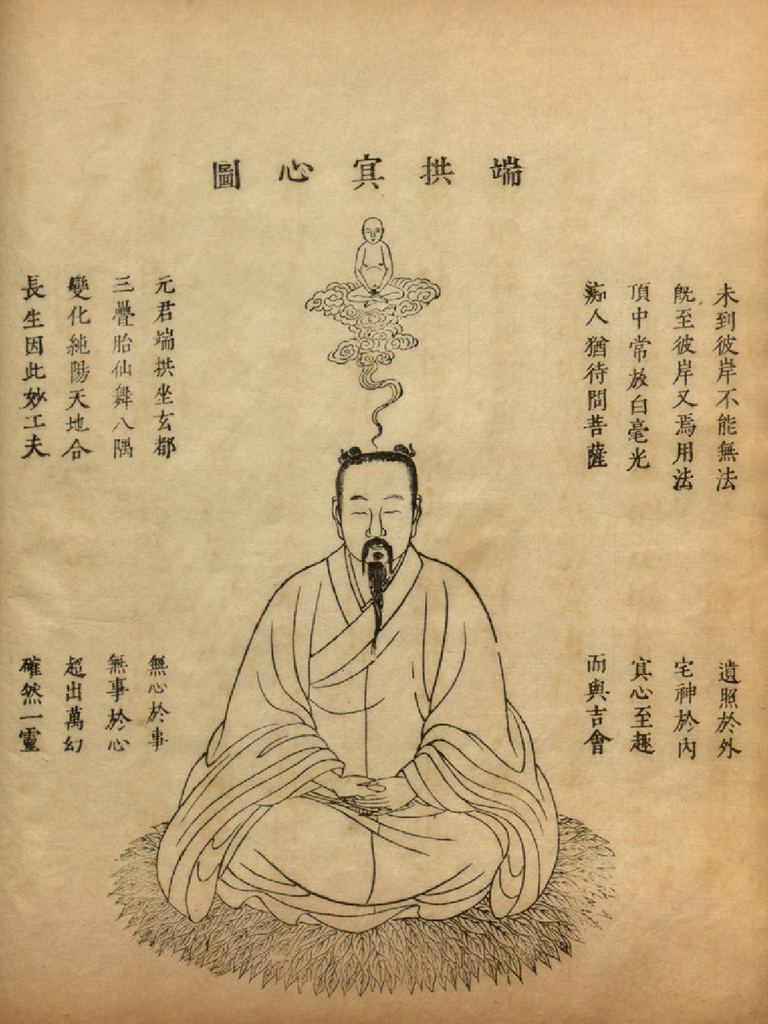 端拱冥心圖
未到彼岸不能無法
既至彼岸又焉用法
頂中常放白毫光
癡人猶待問菩薩
元君端拱坐玄都
三疊胎仙舞八隅
變化純陽天地合
長生因此妙工夫
遺照於外
宅神於內
冥心至趣
而與吉會
無心於事
無事於心
超出萬幻
確然一靈